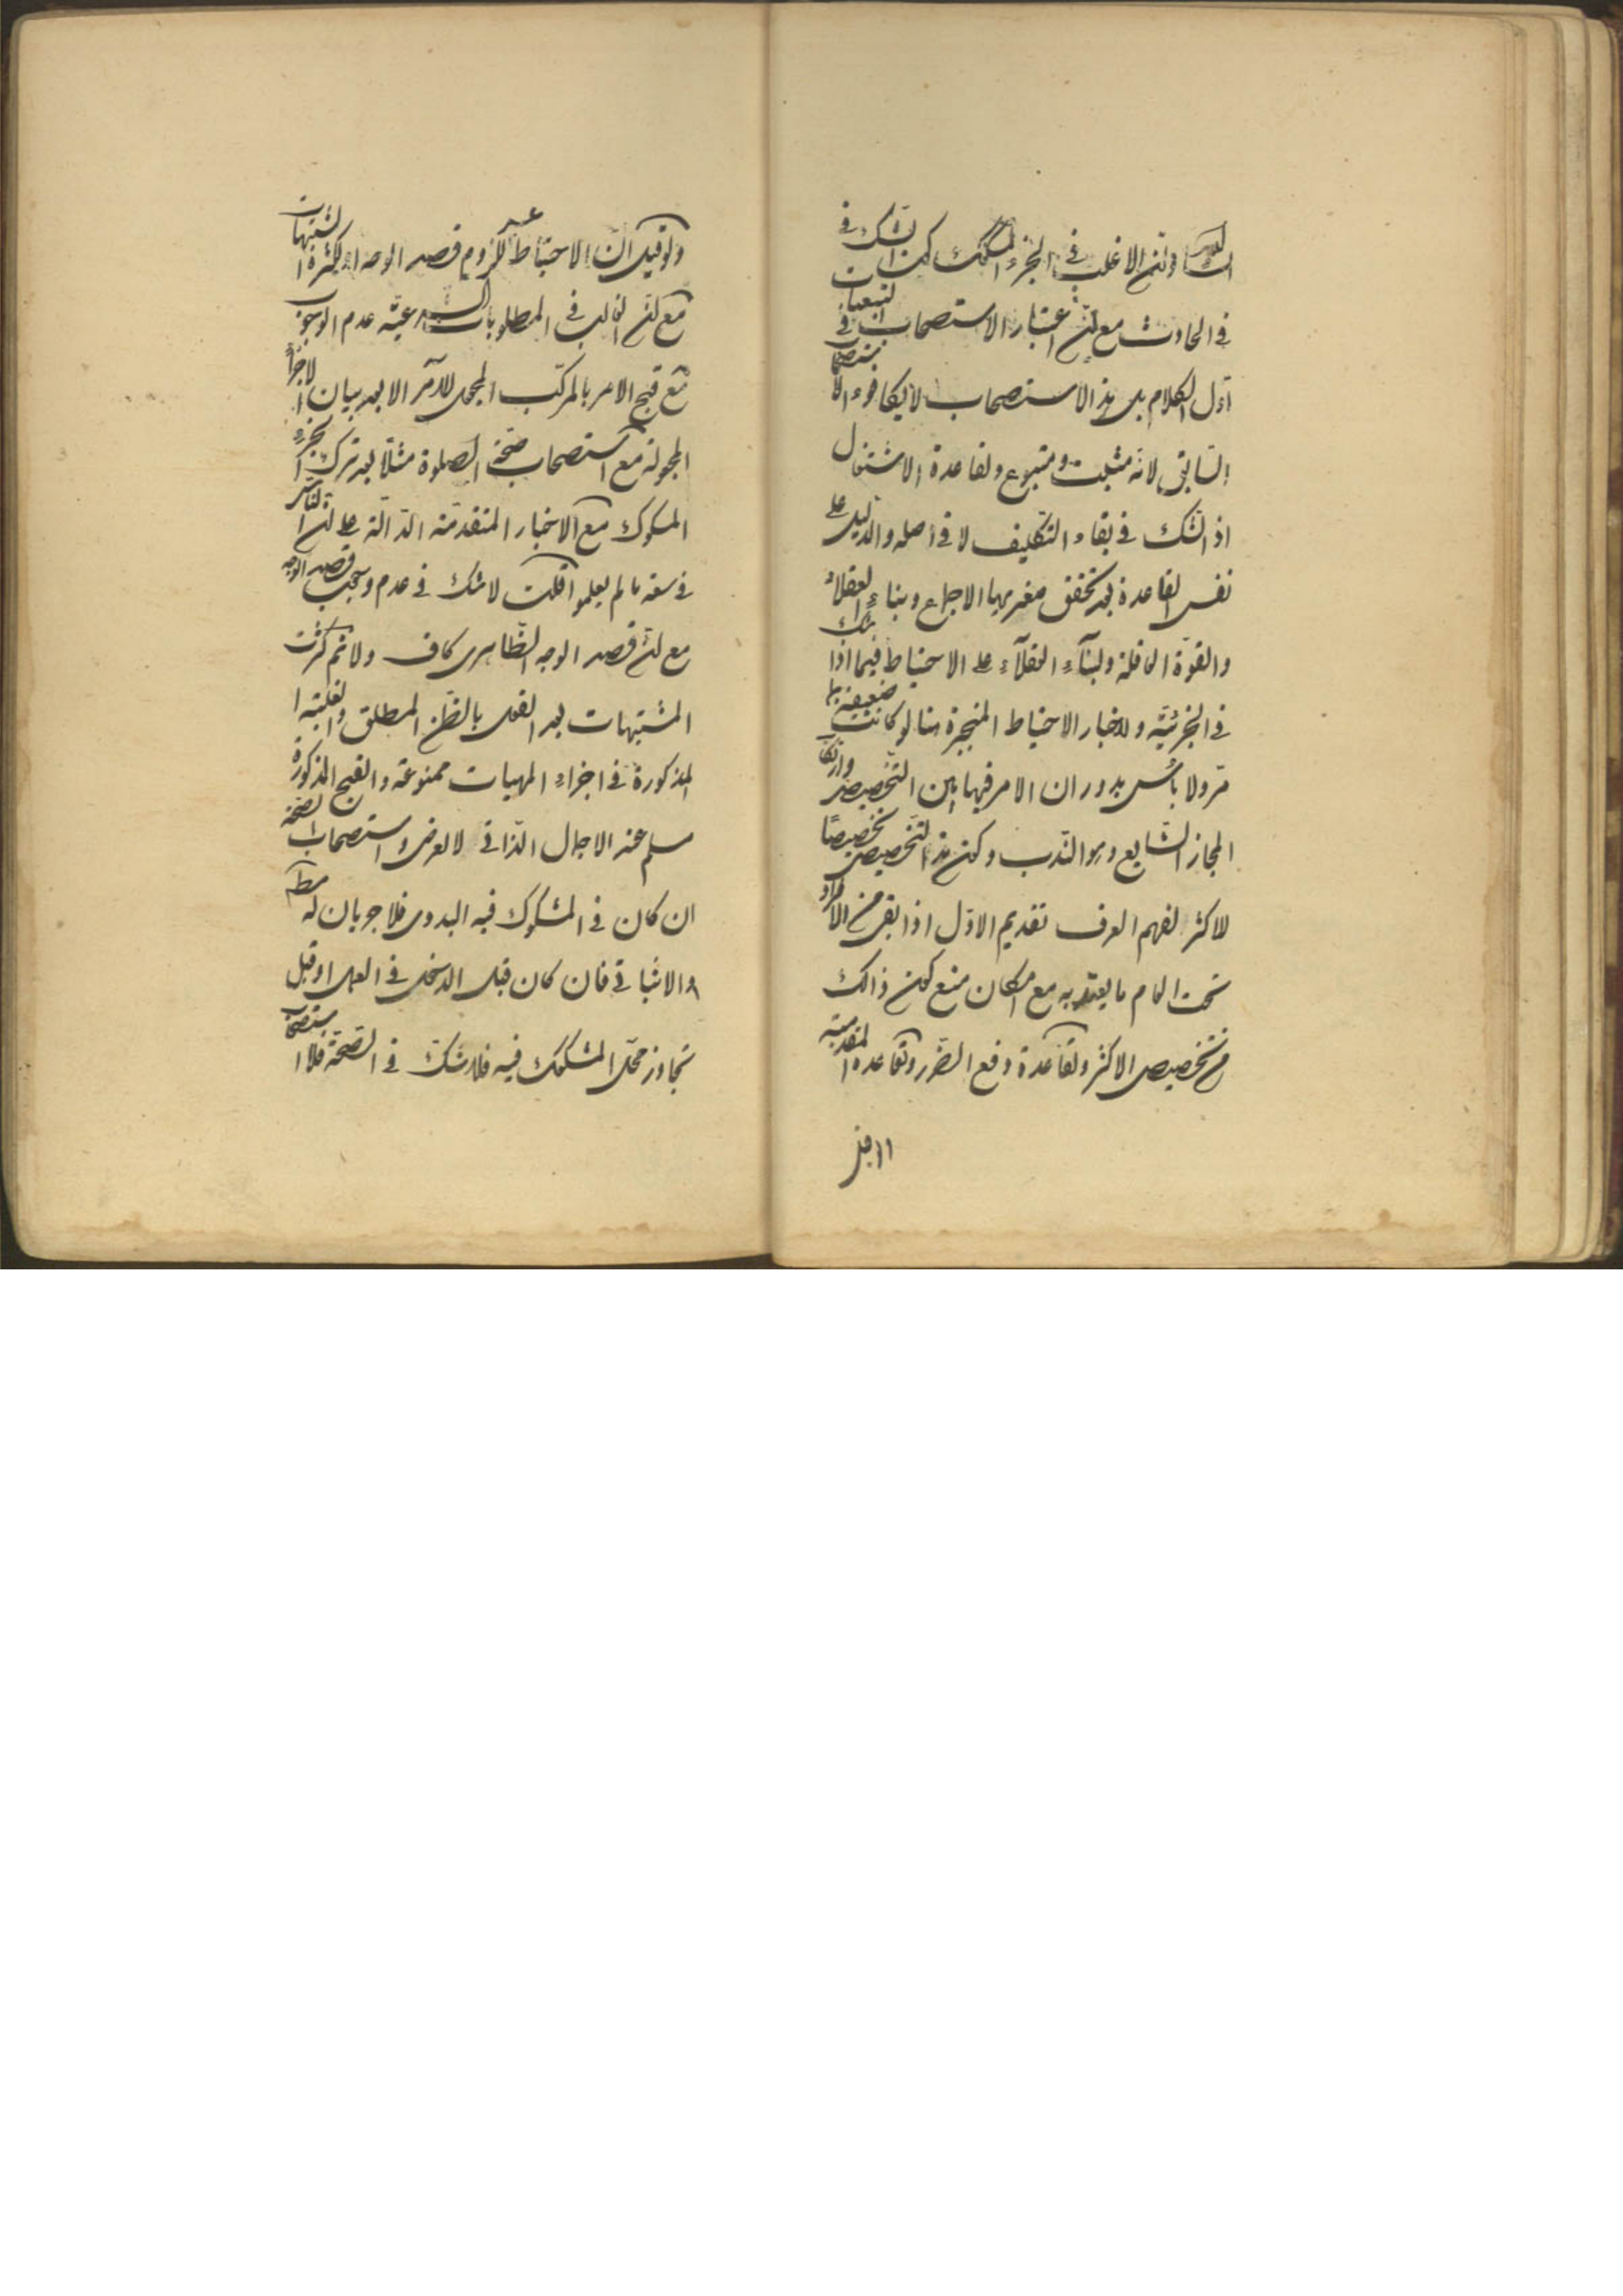 في الحادث مع ان اعتبار الاستصحاب في التبعيات
اول الكلام بل هذا الاستصحاب لا يكافوء الاستصحاب
السابق لانه مثبت ومتبوع ولقاعدة الاشتغال
اذ الشك في بقاء التكليف لا في اصله والدليل على
نفس القاعدة بعد تحقق صغريها الاجماع وبناء العقلاء
والقوة العاقلة ولبناء العقلاء على الاحتياط فيما اذا شك
في الجزئية ولاخبار الاحتياط المنجبرة هنا لو كانت ضعيفة بما
مر ولا بأس بدوران الامر فيها بين التخصيص وارتكاب
المجاز الشايع وهو الندب وكون هذا التخصيص تخصيصا
للاكثر لفهم العرف تقديم الاول اذا بقى من الافراد
تحت العام ما يعتد به مع امكان منع كون ذالك
من تخصيص الاكثر ولقاعدة دفع الضرر ولقاعدة المقدمية
ولو قيل ان الاحتياط للزوم قصد الوجه او لكثرة المشتبهات
مع ان الغالب في المطلوبات الشرعية عدم الوجوب
مع قبح الامر بالمركب المجمل للآمر الا بعد بيان الاجزاء
المجعولة مع استصحاب صحة الصلوة مثلا بعد ترك الجزء
المشكوك مع الاخبار المتقدمة الدالة على ان الناس
في سعة ما لم يعلموا قلت لا شك في عدم وجوب قصد الوجه
مع ان قصد الوجه الظاهرى كاف ولا ثم كثرت
المشتبهات بعد القول بالظن المطلق والغلبة
المذكورة في اجزاء المهيات ممنوعة والقبح المذكور
مسلم عند الاجمال الذاتي لا العرضى واستصحاب الصحة
ان كان في المشكوك فيه البدوى فلا جريان له مط
والاثباتي فان كان قبل الدخل في العمل او قبل
تجاوز محل المشكوك فيه فلا شك في الصحة فلا استصحاب